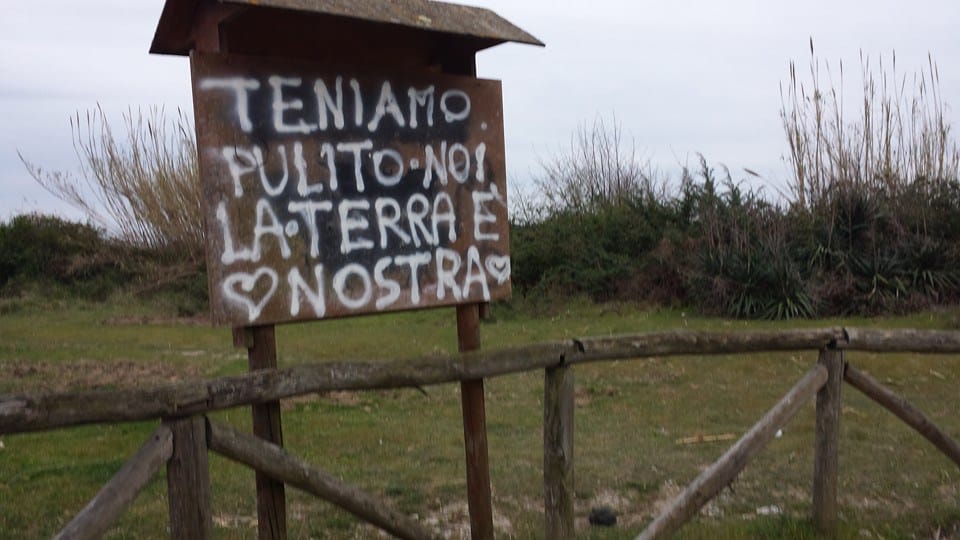 TENIAMO
PULITO·NOI
LA·TERRA È
♡NOSTRA♡